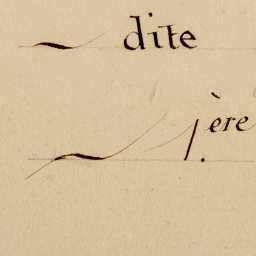 ~ dite
~ 1.ère